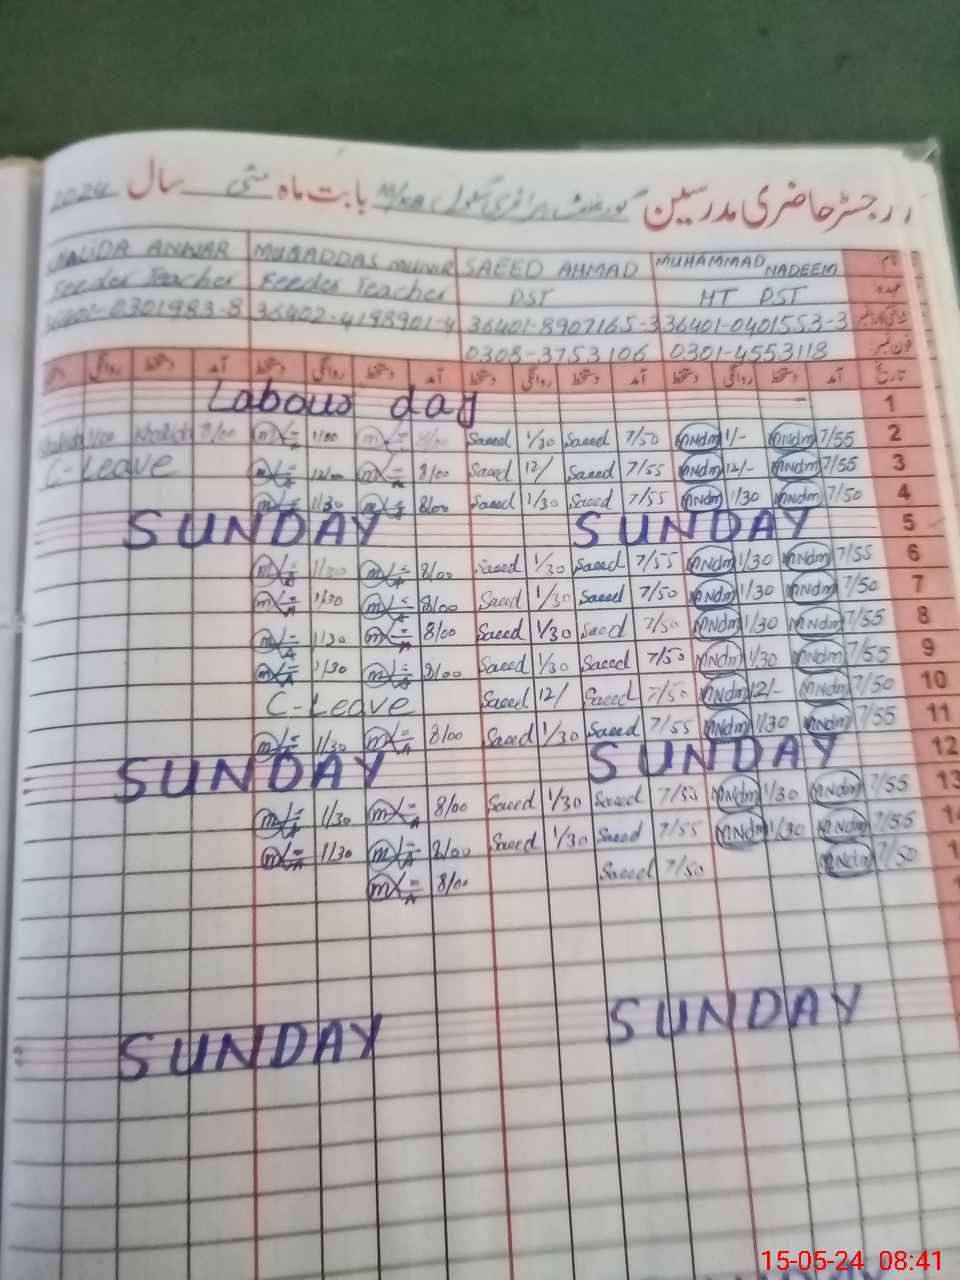 رجسٹر حاضری مدرسین گورنمنٹ پرائمری سکول بابت ماہ مئی سال 2024
ANWAR MUQADDAS MUNIR SAEED AHMAD MUHAMMAD NADEEM
Feeder Teacher Feeder Teacher PST HT PST
0301983-8 36402-4198901-4 36401-8907165-3 36401-0401553-3
0308-3753106 0301-4553118 فون نمبر
روانگی دستخط آمد دستخط روانگی دستخط آمد دستخط روانگی دستخط آمد دستخط روانگی دستخط آمد تاریخ
Labour day 1
1/00 Khalida 8/00 1/00 8/00 Saeed 1/30 Saeed 7/50 MNdm 1/- MNdm 7/55 2
C-Leave 12/00 8/00 Saeed 12/ Saeed 7/55 MNdm 12/- MNdm 7/55 3
1/30 8/00 Saeed 1/30 Saeed 7/55 MNdm 1/30 MNdm 7/50 4
SUNDAY SUNDAY 5
1/30 8/00 Saeed 1/30 Saeed 7/55 MNdm 1/30 MNdm 7/55 6
1/30 8/00 Saeed 1/30 Saeed 7/50 MNdm 1/30 MNdm 7/50 7
1/30 8/00 Saeed 1/30 Saeed 7/50 MNdm 1/30 MNdm 7/55 8
1/30 8/00 Saeed 1/30 Saeed 7/50 MNdm 1/30 MNdm 7/55 9
C-Leave Saeed 12/ Saeed 7/50 MNdm 12/- MNdm 7/50 10
1/30 8/00 Saeed 1/30 Saeed 7/55 MNdm 1/30 MNdm 7/55 11
SUNDAY SUNDAY 12
1/30 8/00 Saeed 1/30 Saeed 7/50 MNdm 1/30 MNdm 7/55 13
1/30 8/00 Saeed 1/30 Saeed 7/55 MNdm 1/30 MNdm 7/55
8/00 Saeed 7/50 MNdm 7/50
SUNDAY SUNDAY
15-05-24 08:41